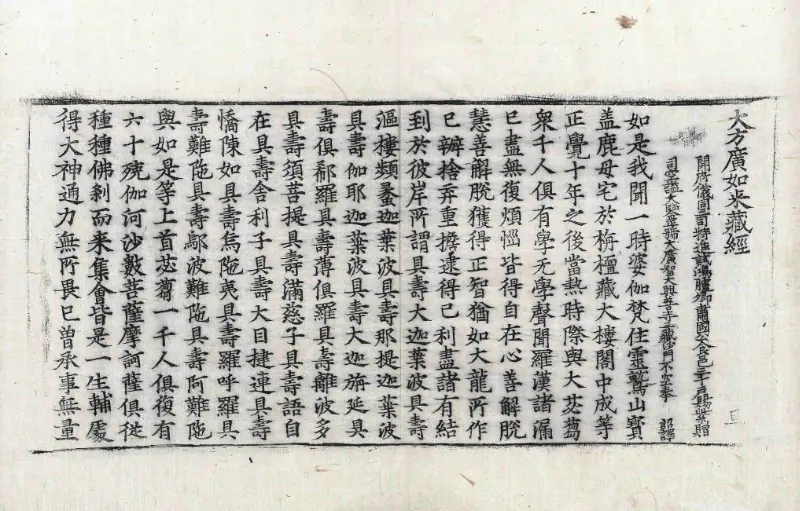 大方廣如來藏經
開府儀同三司特進試鴻臚卿肅國公食邑三千戶賜紫贈
司空謚大鑒正號大廣智大興善寺三藏沙門不空奉 詔譯
如是我聞一時婆伽梵住靈鷲山寶
盖鹿母宅於栴檀藏大樓閣中成等
正覺十年之後當熱時際與大苾蒭
衆千人俱有學无學聲聞羅漢諸漏
已盡無復煩惱皆得自在心善解脫
慧善解脫獲得正智猶如大龍所作
已辦捨弃重擔逮得己利盡諸有結
到於彼岸所謂具壽大迦葉波具壽
漚樓頻蠡迦葉波具壽那提迦葉波
具壽伽耶迦葉波具壽大迦旃延具
壽俱郗羅具壽薄俱羅具壽離波多
具壽須菩提具壽滿慈子具壽語自
在具壽舍利子具壽大目揵連具壽
憍陳如具壽烏陁夷具壽羅呼羅具
壽難陁具壽鄔波難陁具壽阿難陁
與如是等上首苾蒭一千人俱復有
六十殑伽河沙數菩薩摩訶薩俱從
種種佛剎而來集會皆是一生輔處
得大神通力無所畏已曾承事無量